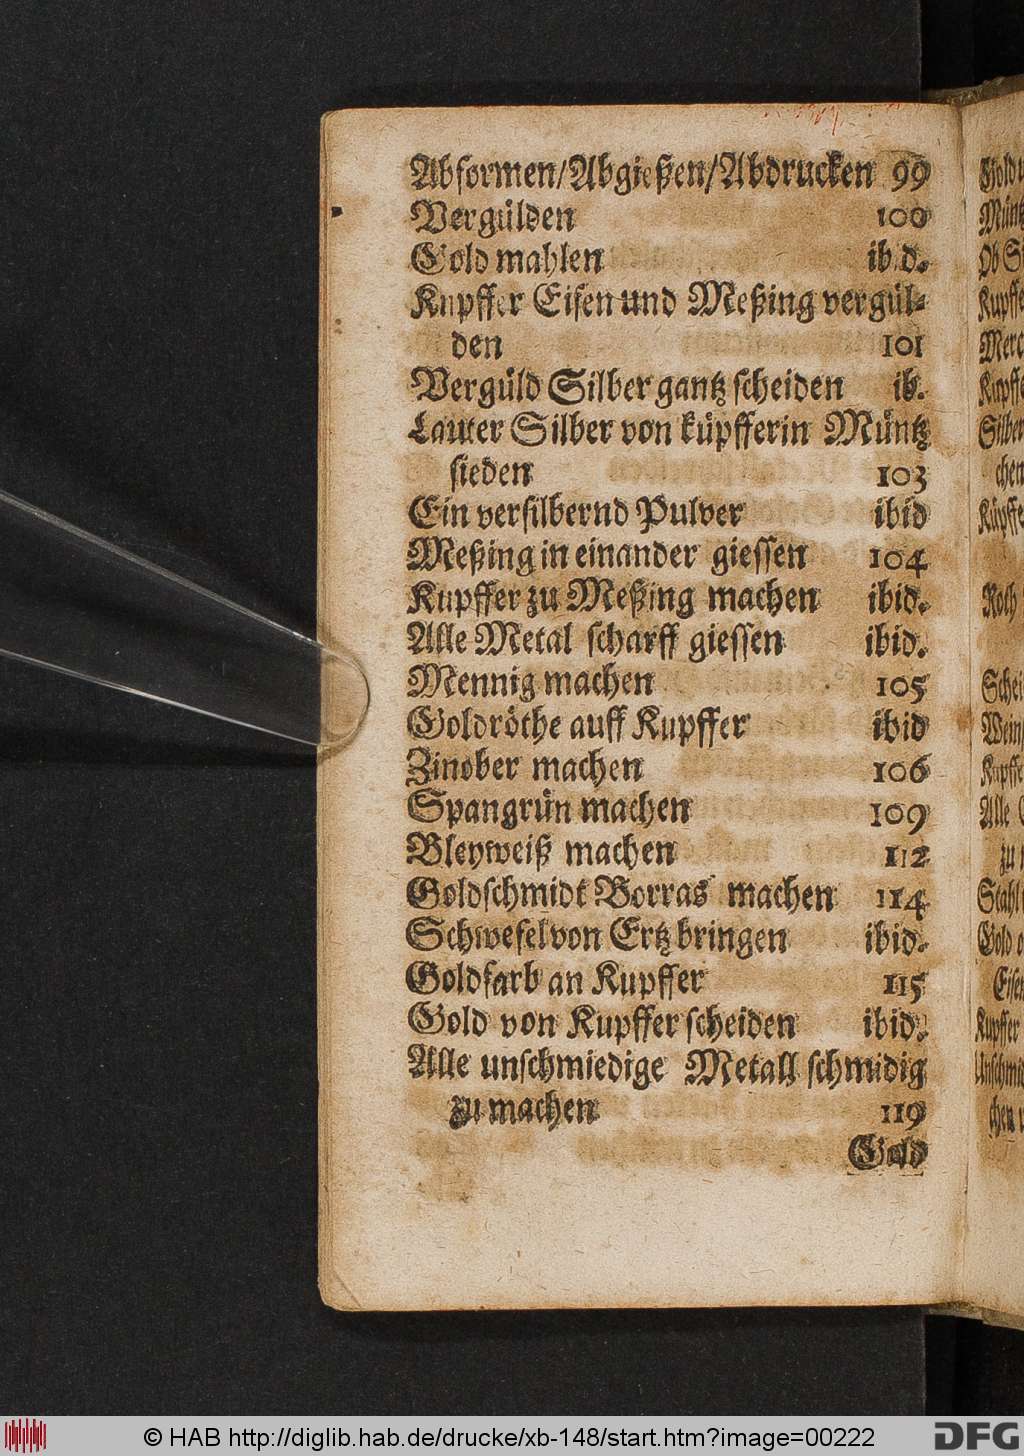 Abformen/Abgießen/Abdrucken 99
Vergülden 100
Gold mahlen ibid.
Kupffer Eisen und Meßing vergül-
den 101
Vergüld Silber gantz scheiden ib.
Lauter Silber von küpfferin Müntz
sieden 103
Ein versilbernd Pulver ibid
Meßing in einander giessen 104
Kupffer zu Meßing machen ibid.
Alle Metal scharff giessen ibid.
Mennig machen 105
Goldröthe auff Kupffer ibid
Zinober machen 106
Spangrün machen 109
Bleyweiß machen 112
Goldschmidt Borras machen 114
Schwefel von Ertz bringen ibid.
Goldfarb an Kupffer 115
Gold von Kupffer scheiden ibid.
Alle unschmiedige Metall schmidig
zu machen 119
Gold
© HAB http://diglib.hab.de/drucke/xb-148/start.htm?image=00222
DFG